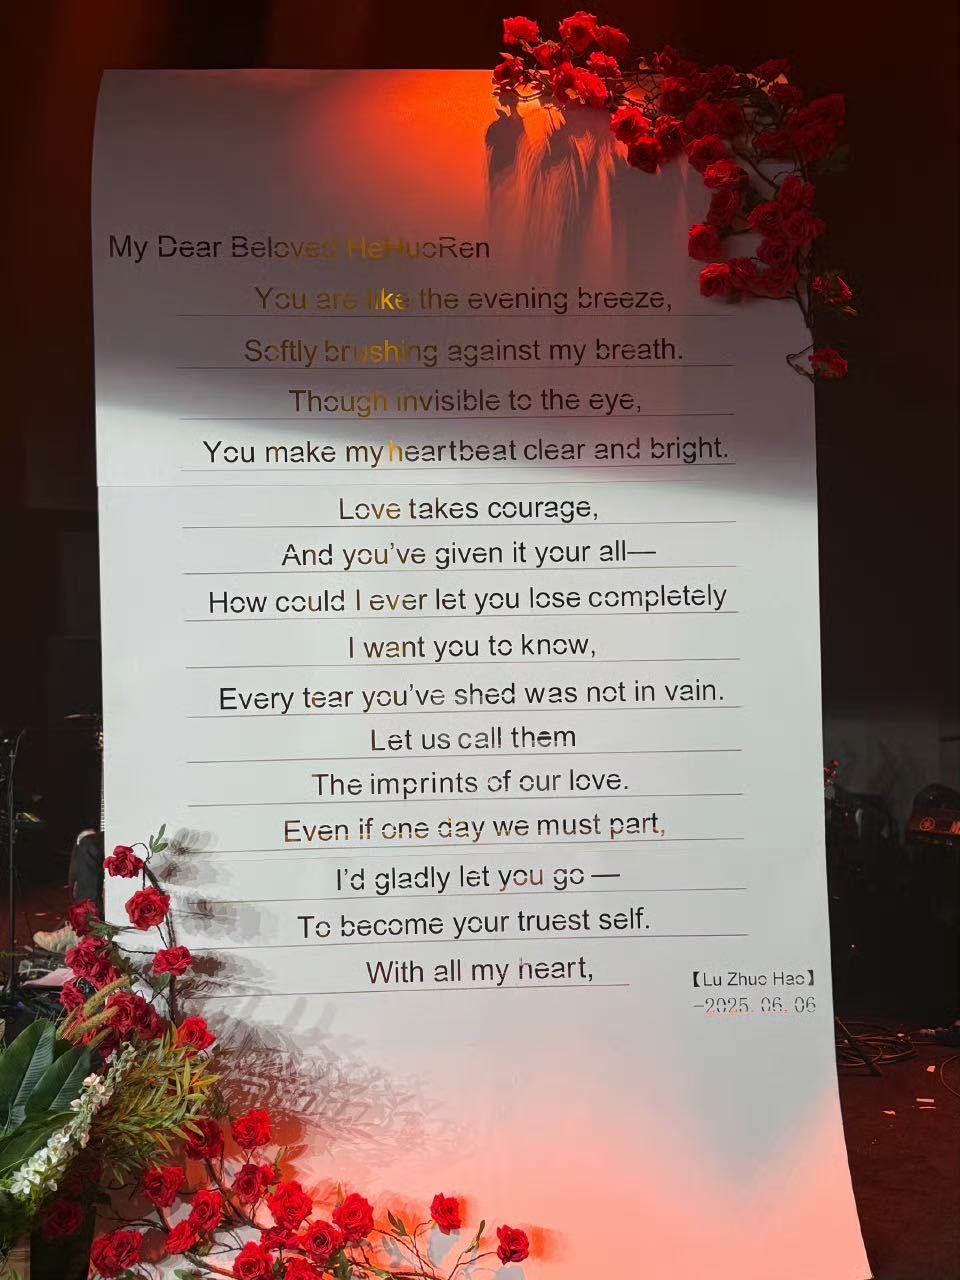 My Dear Beloved HeHuoRen
You are like the evening breeze,
Softly brushing against my breath.
Though invisible to the eye,
You make my heartbeat clear and bright.
Love takes courage,
And you've given it your all—
How could I ever let you lose completely
I want you to know,
Every tear you've shed was not in vain.
Let us call them
The imprints of our love.
Even if one day we must part,
I'd gladly let you go —
To become your truest self.
With all my heart,
【Lu Zhuo Hao】
-2025. 06. 06